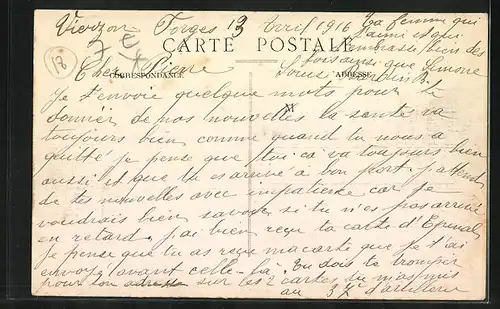 Vierzon Forges 13 Avril 1916
Ta femme qui
t'aime et qui
t'embrasse bien des
fois ainsi que Simone
CARTE POSTALE
18
Cher Pierre
CORRESPONDANCE
ADRESSE
Je t'envoie quelque mots pour te
donner de nos nouvelles la santé va
toujours bien comme quand tu nous a
quitté je pense que toi ça va toujours bien
aussi et que tu es arrivé à bon port. j'attend
de tes nouvelles avec impatience car je
voudrais bien savoir si tu n'es pas arrivé
en retard. j'ai bien reçu ta carte d'Epinal
je pense que tu as reçu ma carte que je t'ai
envoyé avant celle-la. tu dois te tromper
pour ton adresse sur les 2 cartes tu m'as mis
au 3 d'artillerie